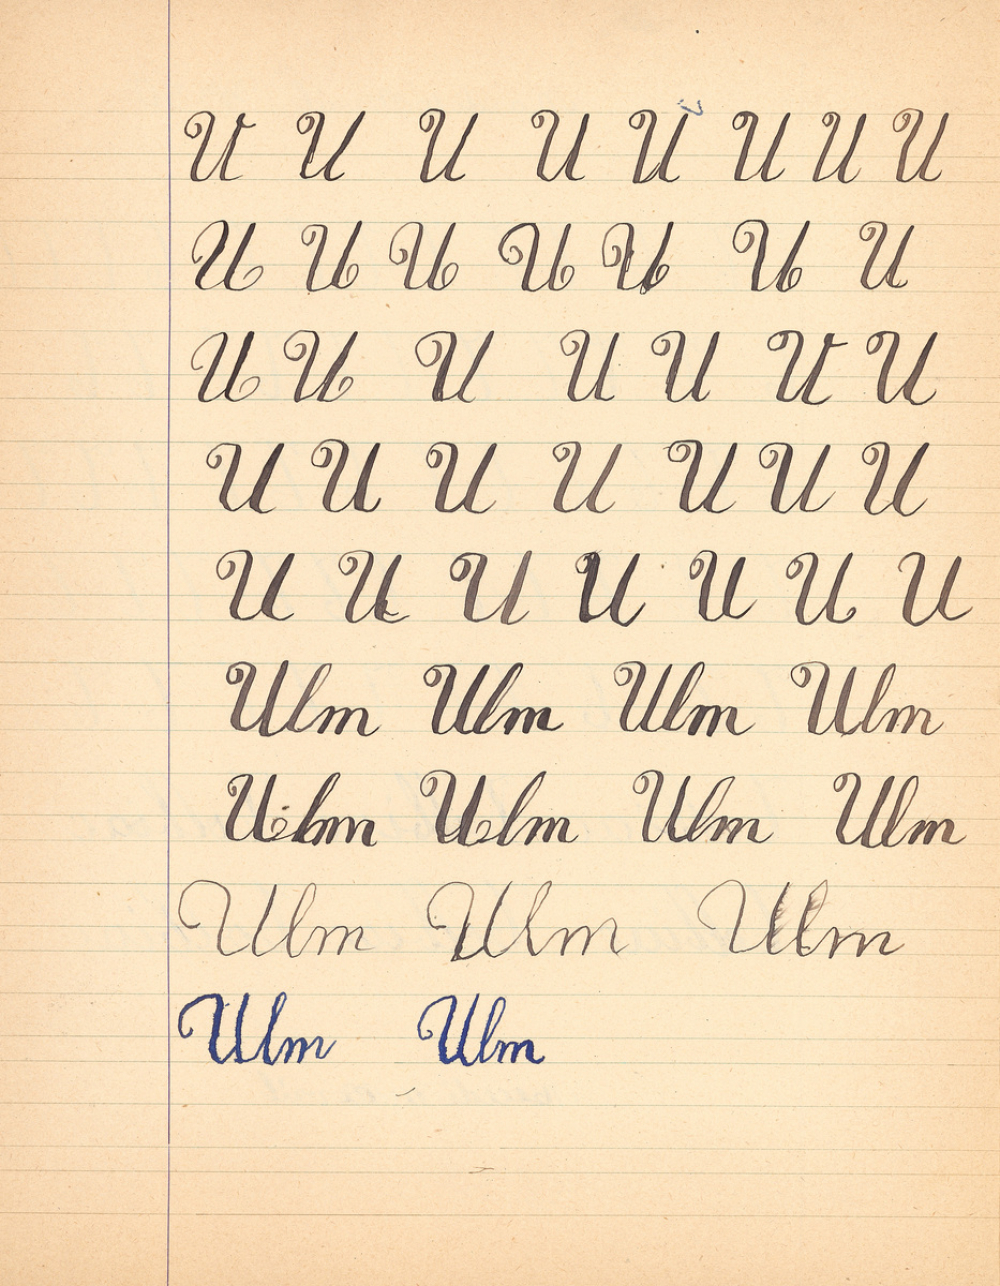 U U U U U U U U
U U U U U U U
U U U U U U U
U U U U U U U
U U U U U U U
Ulm Ulm Ulm Ulm
Ulm Ulm Ulm Ulm
Ulm Ulm Ulm
Ulm Ulm